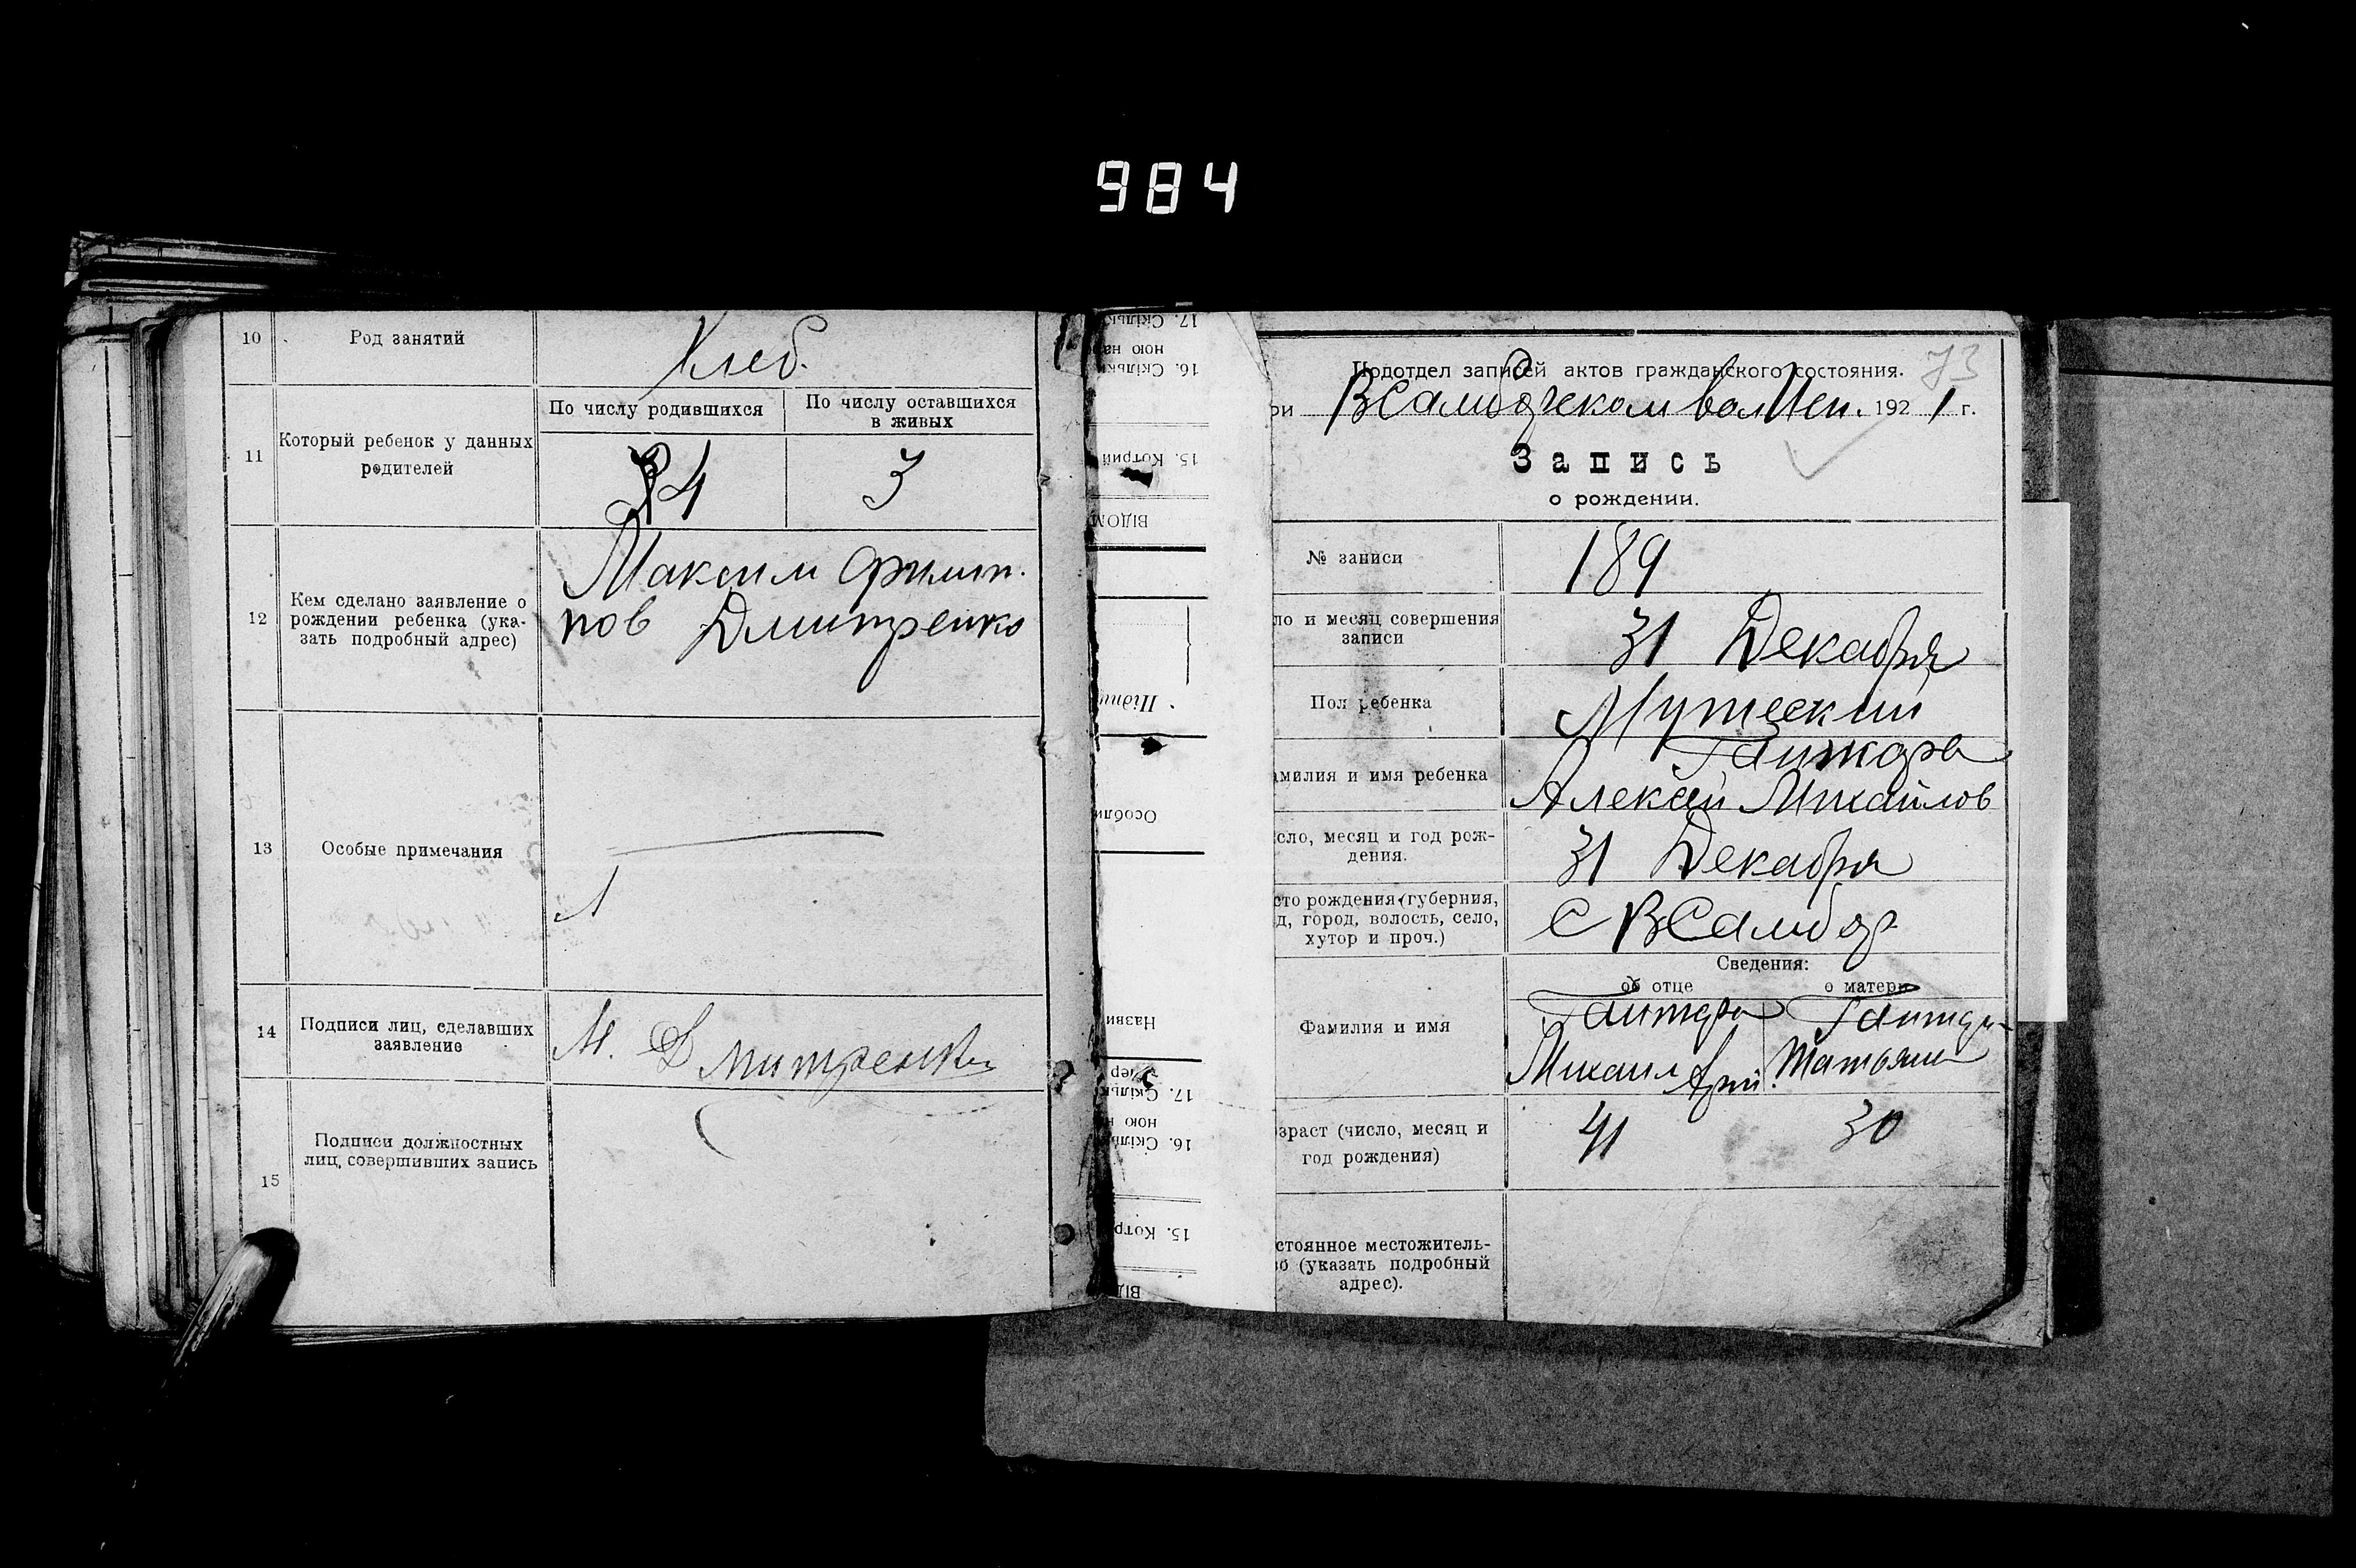 984
10
Род занятий
Хлеб.
11
Который ребенок у данных
родителей
По числу родившихся
По числу оставшихся
в живых
4
3
12
Кем сделано заявление о
рождении ребенка (ука-
зать подробный адрес)
Максим Филип-
пов Дмитренко
13
Особые примечания
14
Подписи лиц, сделавших
заявление
М. Дмитренко
15
Подписи должностных
лиц, совершивших запись
17. Скільк
ною на
16. Скільки
15. Котрий
ВІДОМ
Підпи
Особли
Назви
17. Скільк
ною н
16. Скільк
15. Котр
ВІД
73
Подотдел записей актов гражданского состояния.
ри ВСамборском волИсп. 1921 г.
Запись
о рождении.
№ записи
189
ло и месяц совершения
записи
31 Декабря
Пол ребенка
Мужеский
амилия и имя ребенка
Алексей Михайлов
сло, месяц и год рож-
дения.
31 Декабря
сто рождения (губерния,
д, город, волость, село,
хутор и проч.)
С ВСамбор
Сведения:
об отце
о матери
Фамилия и имя
Михаил
Татьяна
зраст (число, месяц и
год рождения)
41
30
стоянное местожитель-
во (указать подробный
адрес).